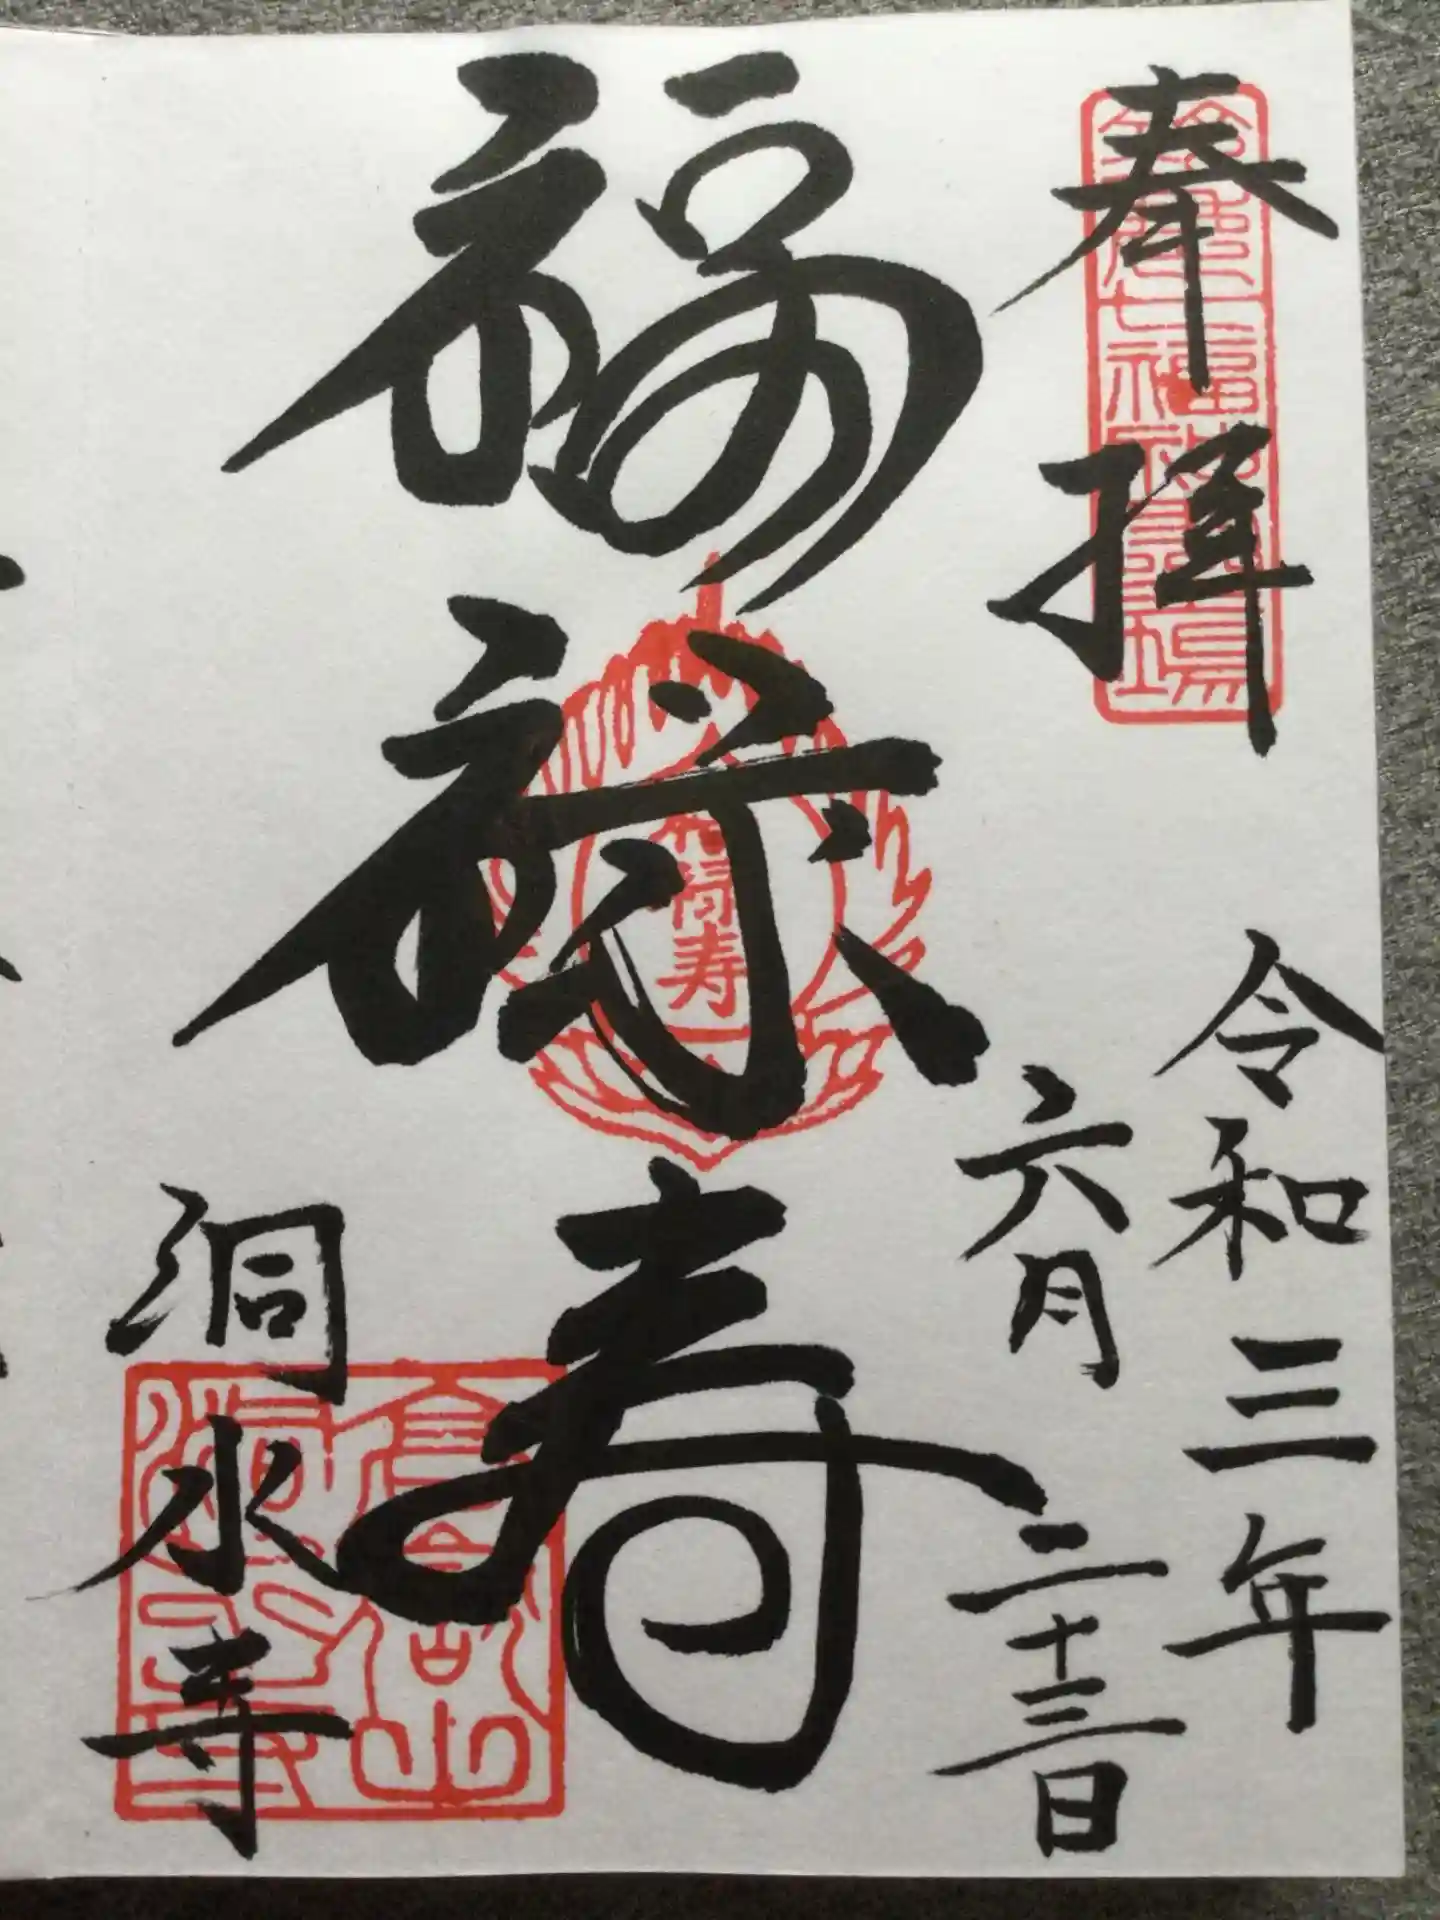 奉拝
令和三年
六月二十三日
福禄寿
福禄寿
洞水寺